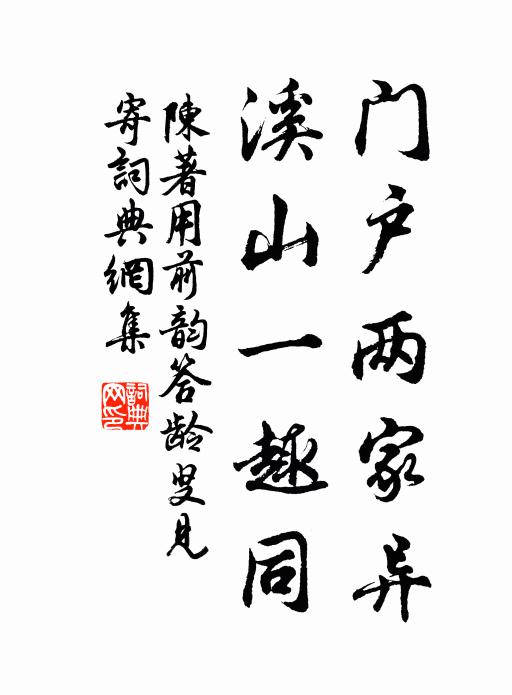 门户两家异
溪山一趣同
陳著用前韵答龄叟見
寄詞典網集
詞典网印